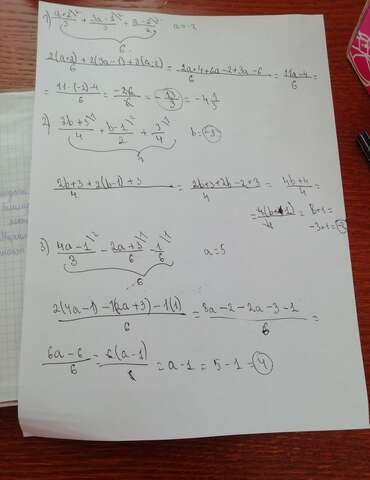 1) a+2/3 + 3a-1/3 + a-2/2 a=-2
6
2(a+2)+2(3a-1)+3(a-2)/6 = 2a+4+6a-2+3a-6/6 = 11a-4/6 =
= 11·(-2)-4/6 = -26/6 = -13/3 = -4 1/3
2) 2b+3/4 + b-1/2 + 3/4 b=-3
4
2b+3+2(b-1)+3/4 = 2b+3+2b-2+3/4 = 4b+4/4 =
= 4(b+1)/4 = b+1 =
-3+1 =
3) 4a-1/3 - 2a+3/6 - 1/6 a=5
6
2(4a-1)-1(2a+3)-1(1)/6 = 8a-2-2a-3-1/6 =
6a-6/6 = 6(a-1)/6 = a-1 = 5-1 = 4